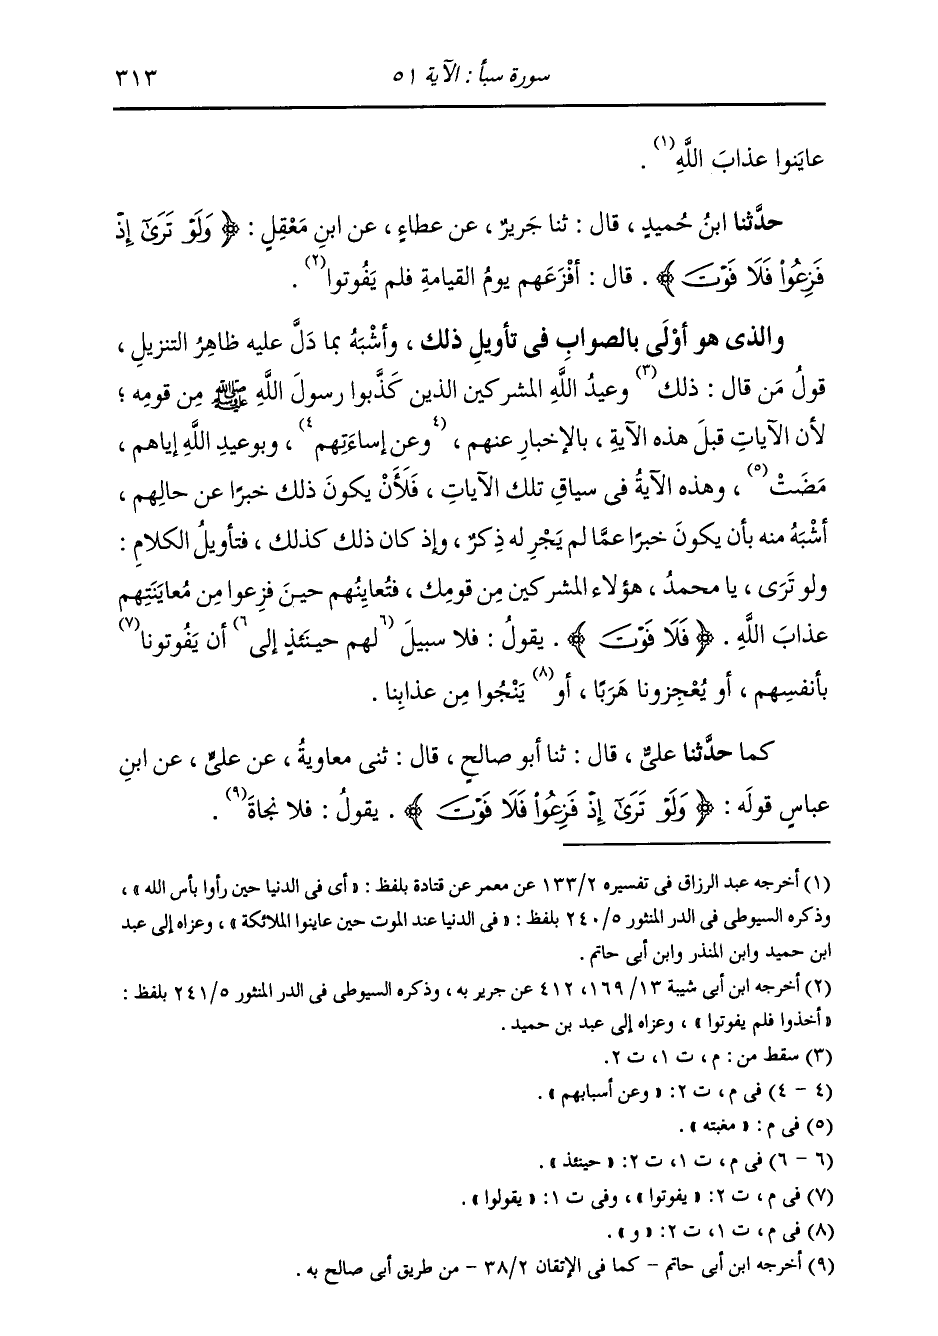 سورة سبأ : الآية ٥١ ٣١٣
عايَنوا عذابَ اللَّهِ(١) .
حدَّثنا ابنُ حُميدٍ ، قال : ثنا جَريرٌ ، عن عطاءٍ ، عن ابنِ مَعْقِلٍ : ﴿ وَلَوْ تَرَىٰٓ إِذْ
فَزِعُواْ فَلَا فَوْتَ ﴾ . قال : أفْزَعَهم يومُ القيامةِ فلم يَفُوتوا(٢) .
والذى هو أوْلَى بالصوابِ فى تأويلِ ذلك ، وأشْبَهُ بما دَلَّ عليه ظاهِرُ التنزيلِ ،
قولُ مَن قال : ذلك(٣) وعيدُ اللَّهِ المشركين الذين كَذَّبوا رسولَ اللَّهِ ﷺ مِن قومِه ؛
لأن الآياتِ قبلَ هذه الآيةِ ، بالإخبارِ عنهم ، (٤وعن إساءَتِهم٤) ، وبوعيدِ اللَّهِ إياهم ،
مَضَتْ(٥) ، وهذه الآيةُ فى سياقِ تلك الآياتِ ، فَلَأَنْ يكونَ ذلك خبرًا عن حالِهم ،
أشْبَهُ منه بأن يكونَ خبرًا عمَّا لم يَجْرِ له ذِكرٌ ، وإذ كان ذلك كذلك ، فتأويلُ الكلامِ :
ولو تَرَى ، يا محمدُ ، هؤلاء المشركين مِن قومِك ، فتُعاينُهم حينَ فزِعوا مِن مُعايَنَتِهم
عذابَ اللَّهِ . ﴿ فَلَا فَوْتَ ﴾ . يقولُ : فلا سبيلَ (٦لهم حينَئذٍ إلى٦) أن يَفُوتونا(٧)
بأنفسِهم ، أو يُعْجِزونا هَرَبًا ، أو(٨) يَنْجُوا مِن عذابِنا .
كما حدَّثنا علىٌّ ، قال : ثنا أبو صالحٍ ، قال : ثنى معاويةُ ، عن علىٍّ ، عن ابنِ
عباسٍ قولَه : ﴿ وَلَوْ تَرَىٰٓ إِذْ فَزِعُواْ فَلَا فَوْتَ ﴾ . يقولُ : فلا نجاةَ(٩) .
(١) أخرجه عبد الرزاق فى تفسيره ١٣٣/٢ عن معمر عن قتادة بلفظ : « أى فى الدنيا حين رأوا بأس الله » ،
وذكره السيوطى فى الدر المنثور ٢٤٠/٥ بلفظ : « فى الدنيا عند الموت حين عاينوا الملائكة » ، وعزاه إلى عبد
ابن حميد وابن المنذر وابن أبى حاتم .
(٢) أخرجه ابن أبى شيبة ١٣/ ١٦٩، ٤١٢ عن جرير به ، وذكره السيوطى فى الدر المنثور ٢٤١/٥ بلفظ :
« أخذوا فلم يفوتوا » ، وعزاه إلى عبد بن حميد .
(٣) سقط من : م ، ت ١، ت ٢.
(٤ - ٤) فى م ، ت ٢: « وعن أسبابهم » .
(٥) فى م : « مغبته » .
(٦ - ٦) فى م ، ت ١، ت ٢: « حينئذ » .
(٧) فى م ، ت ٢: « يفوتوا » ، وفى ت ١: « يقولوا » .
(٨) فى م ، ت ١، ت ٢: « و » .
(٩) أخرجه ابن أبى حاتم – كما فى الإتقان ٣٨/٢ – من طريق أبى صالح به .